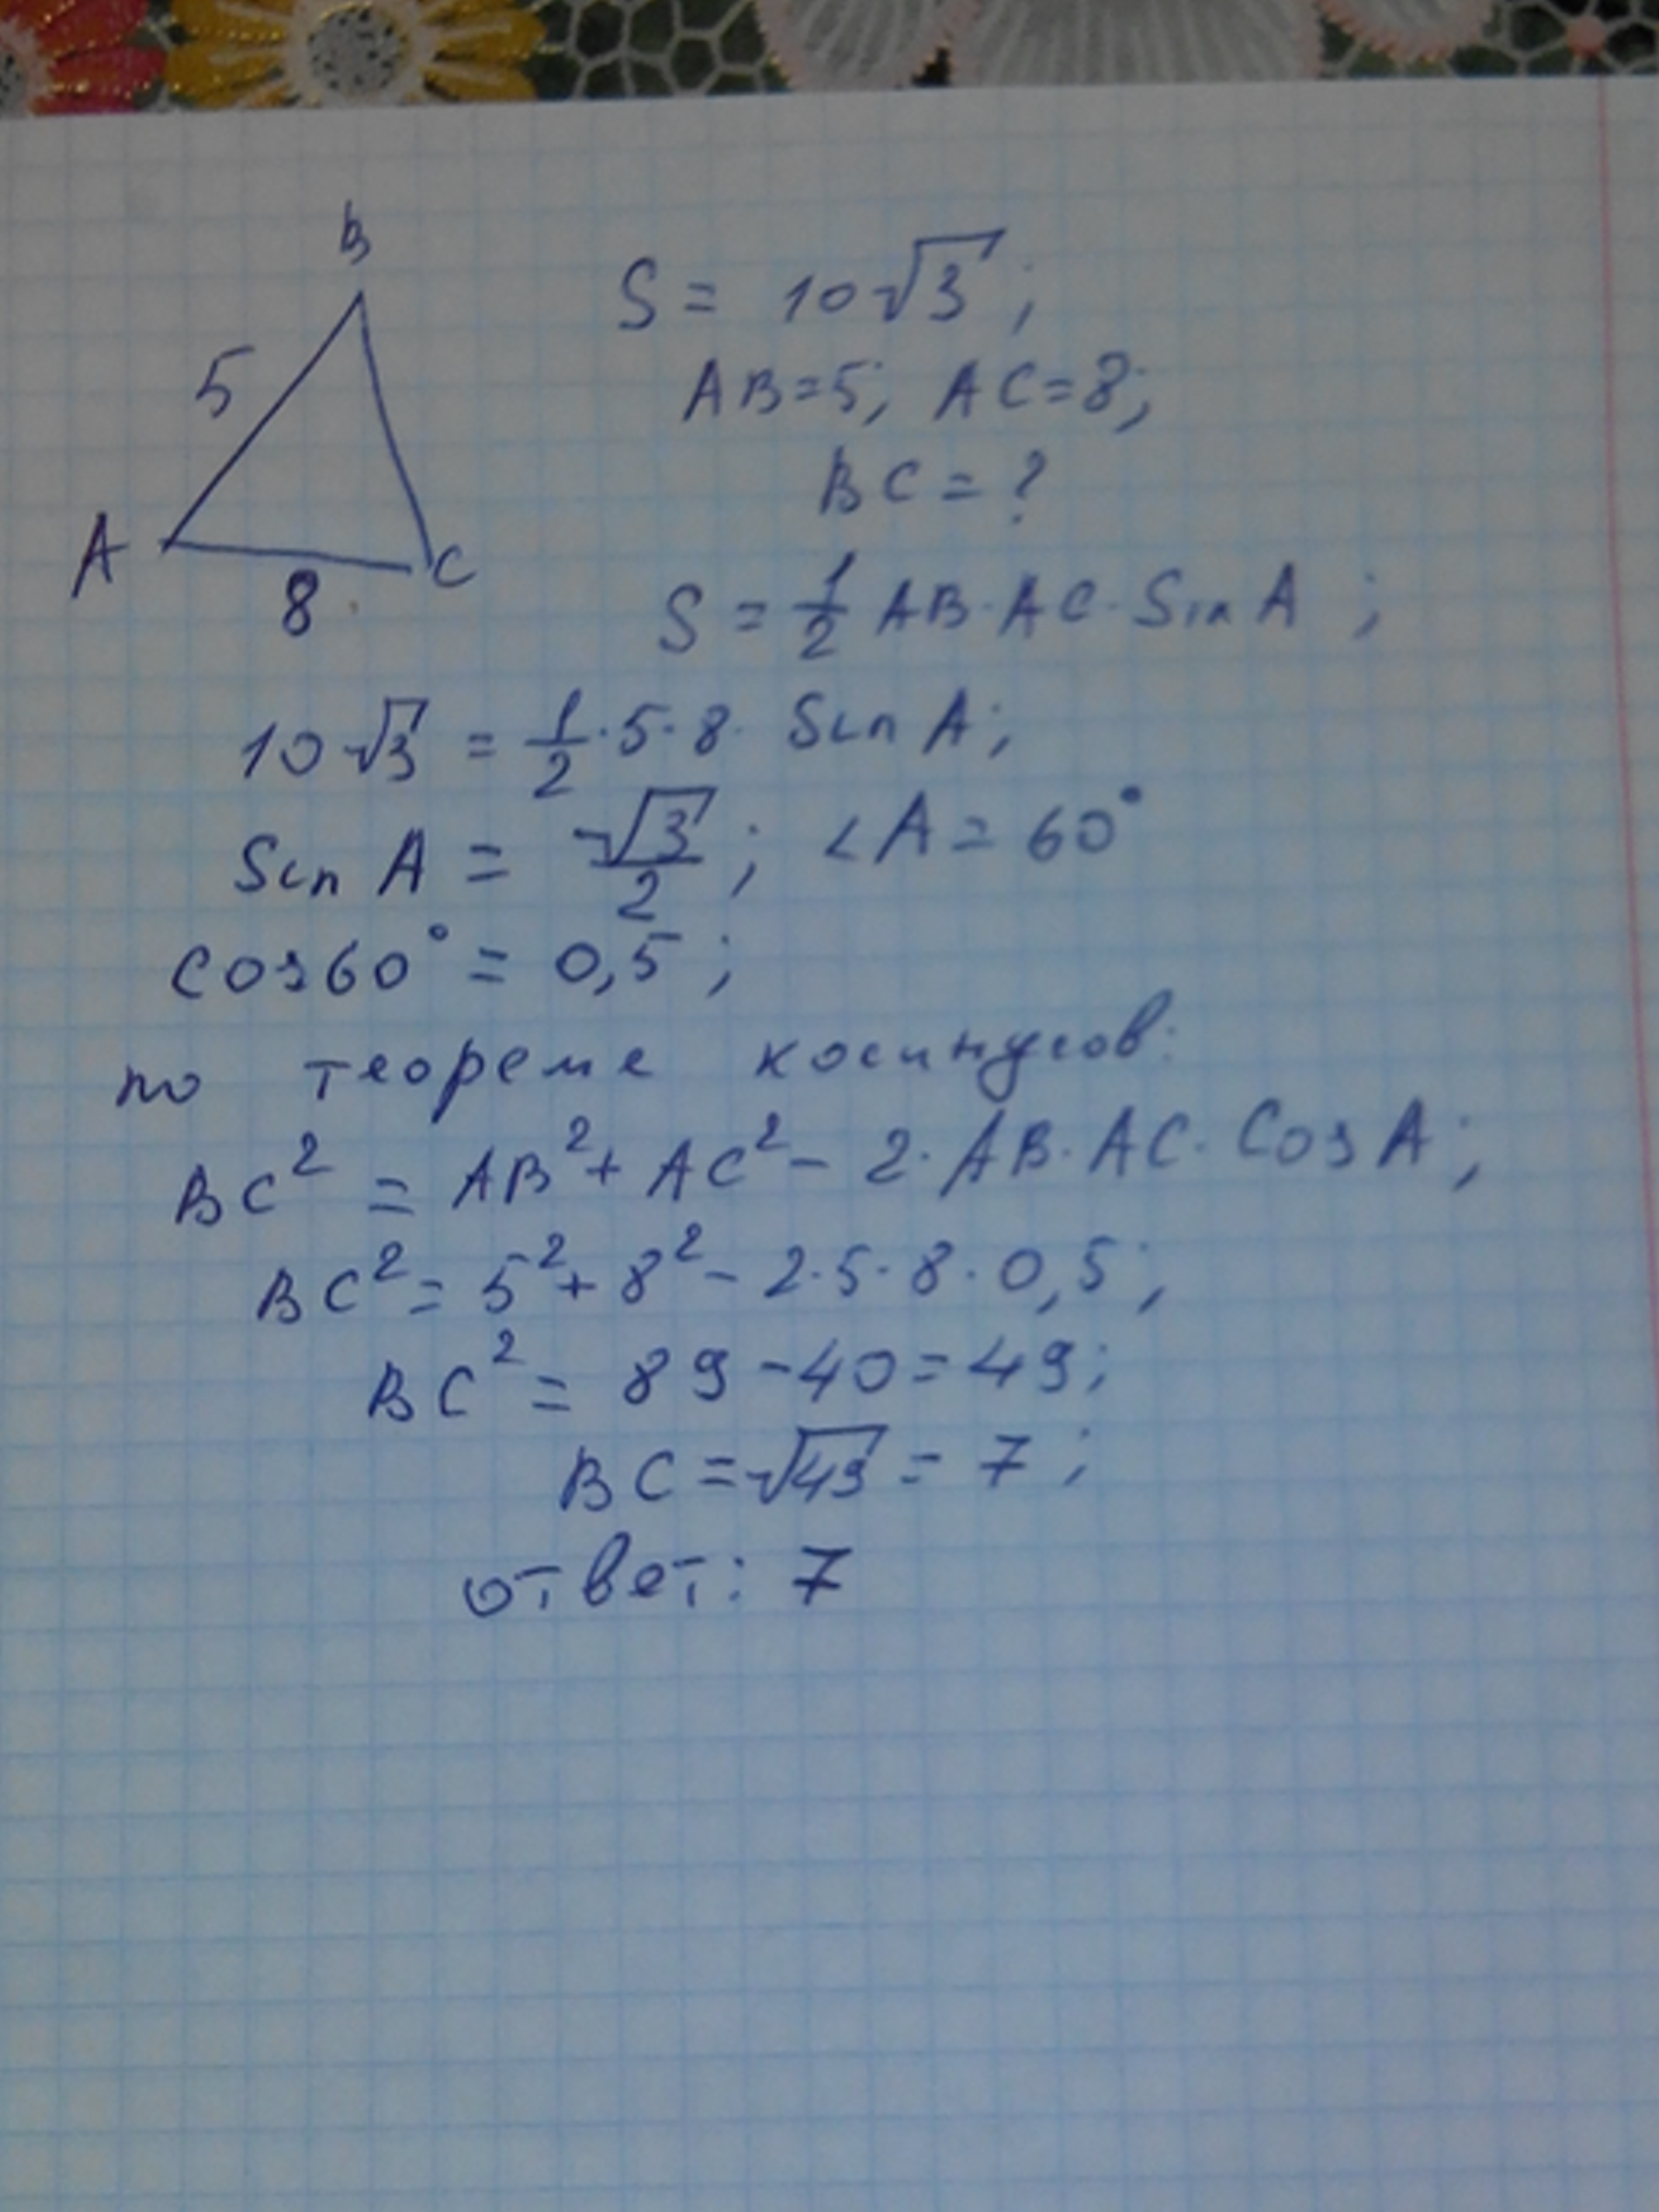 B
S = 10√3;
5
AB=5; AC=8;
BC = ?
A
C
8
S = 1/2 AB·AC·Sin A ;
10√3 = 1/2·5·8· Sin A;
Sin A = √3/2; ∠A = 60°
Cos60° = 0,5;
по теореме косинусов:
BC² = AB² + AC² - 2·AB·AC·Cos A;
BC² = 5² + 8² - 2·5·8·0,5;
BC² = 89 - 40 = 49;
BC = √49 = 7;
ответ: 7